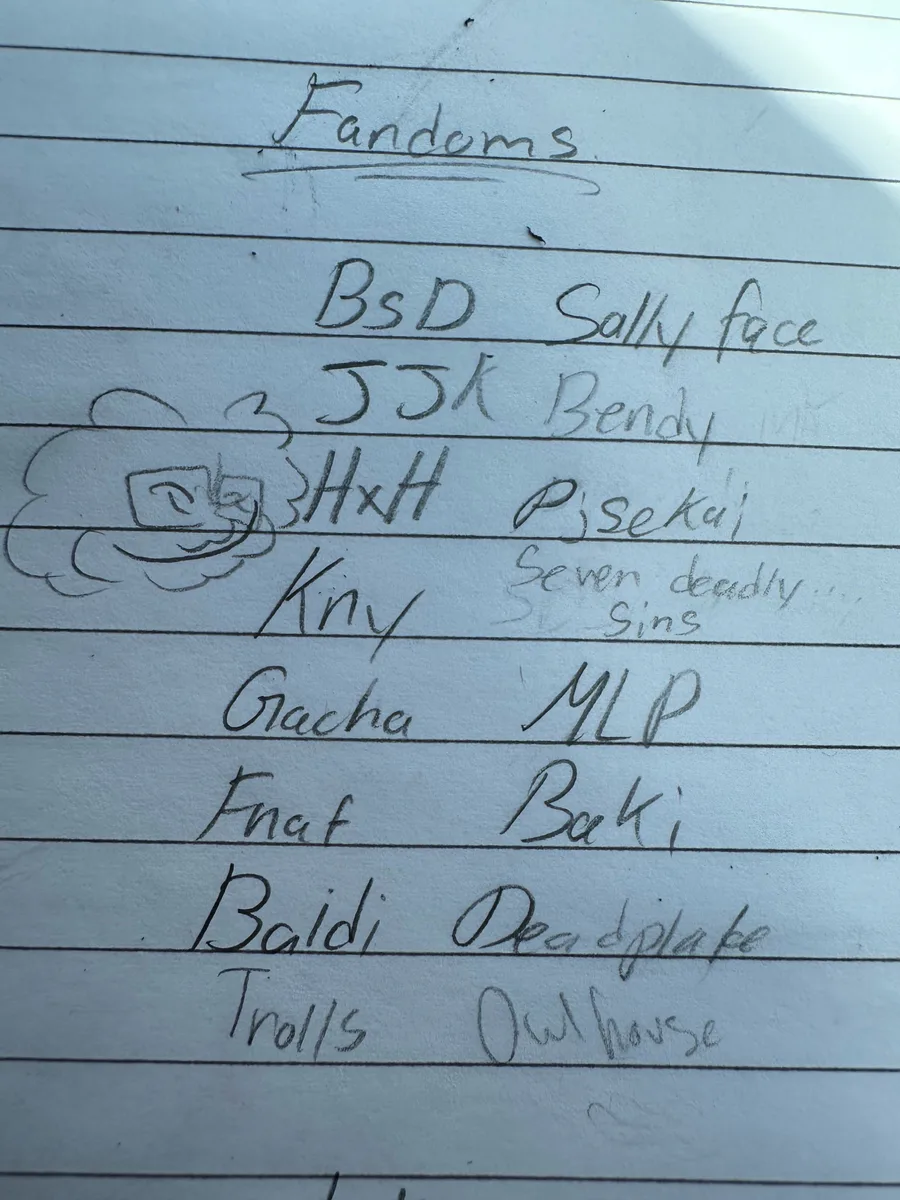 Fandoms
BsD Sally face
JJK Bendy
HxH Pjsekai
Kny Seven deadly....
Sins
Gacha MLP
Fnaf Baki
Baldi Deadplate
Trolls Owlhouse